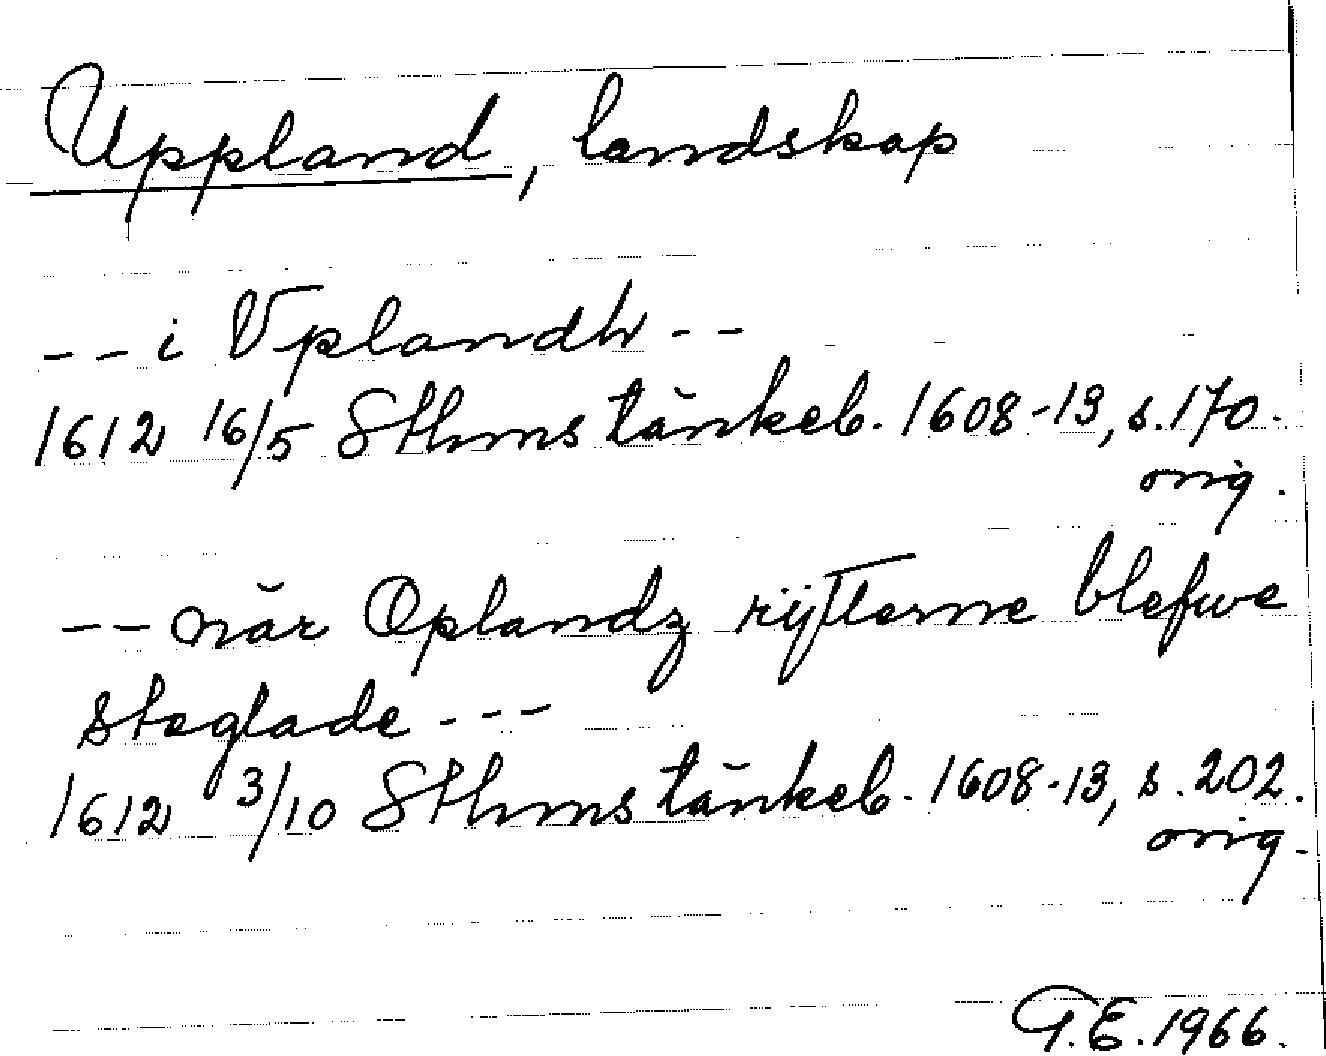 Uppland, landskap
-- i Vplandh --
1612 16/5 Sthms tänkeb. 1608-13, s. 170.
orig.
-- när Oplandz rÿtterne blefwe
steglade ---
1612 3/10 Sthms tänkeb. 1608-13, s. 202.
orig.
G.E. 1966.